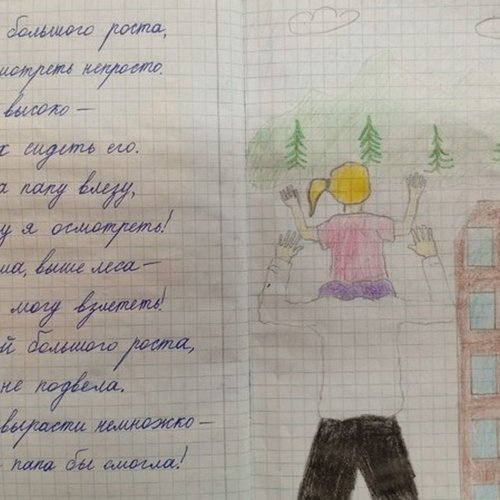 большого роста,
смотреть непросто.
высоко —
сидеть его.
папу влезу,
я осмотреть!
выше леса —
могу взлететь!
большого роста,
не подвела.
вырасти немножко —
папа бы смогла!